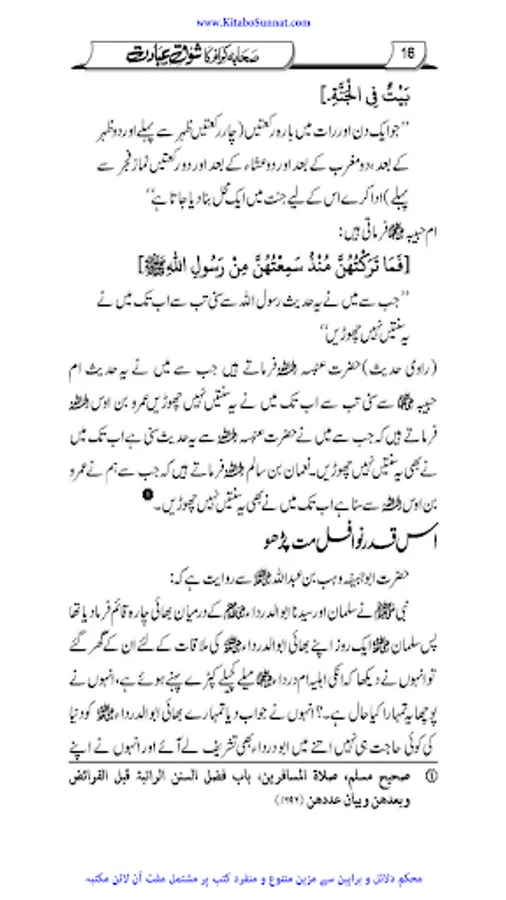 www.KitaboSunnat.com
صحابہ کرام کا شوق عبادت
16
بَيْتٌ فِي الْجَنَّةِ.]
’’جو ایک دن اور رات میں بارہ رکعتیں (چار رکعتیں ظہر سے پہلے اور دو ظہر
کے بعد، دو مغرب کے بعد اور دو عشاء کے بعد اور دو رکعتیں نماز فجر سے
پہلے) ادا کرے اس کے لیے جنت میں ایک محل بنا دیا جاتا ہے‘‘
ام حبیبہ ؓ فرماتی ہیں:
[فَمَا تَرَكْتُهُنَّ مُنْذُ سَمِعْتُهُنَّ مِنْ رَسُولِ اللهِ ﷺ]
’’جب سے میں نے یہ حدیث رسول اللہ سے سنی تب سے اب تک میں نے
یہ سنتیں نہیں چھوڑیں‘‘
(راوی حدیث) حضرت عنبسہ رحمہ اللہ فرماتے ہیں جب سے میں نے یہ حدیث ام
حبیبہ ؓ سے سنی تب سے اب تک میں نے یہ سنتیں نہیں چھوڑیں عمرو بن اوس رحمہ اللہ
فرماتے ہیں کہ جب سے میں نے حضرت عنبسہ رحمہ اللہ سے یہ حدیث سنی ہے اب تک میں
نے بھی یہ سنتیں نہیں چھوڑیں۔ نعمان بن سالم رحمہ اللہ فرماتے ہیں کہ جب سے ہم نے عمرو
بن اوس رحمہ اللہ سے سنا ہے اب تک میں نے بھی یہ سنتیں نہیں چھوڑیں۔ ❶
اس قدر نوافل مت پڑھو
حضرت ابوجحیفہ وہب بن عبداللہ ؓ سے روایت ہے کہ:
نبی ﷺ نے سلمان اور سیدنا ابوالدرداء ؓ کے درمیان بھائی چارہ قائم فرما دیا تھا
پس سلمان ؓ ایک روز اپنے بھائی ابوالدرداء ؓ کی ملاقات کے لئے ان کے گھر گئے
تو انہوں نے دیکھا کہ انکی اہلیہ ام درداء ؓ میلے کچیلے کپڑے پہنے ہوئے ہے، انہوں نے
پوچھا یہ تمہارا کیا حال ہے۔؟ انہوں نے جواب دیا تمہارے بھائی ابوالدرداء ؓ کو دنیا
کی کوئی حاجت ہی نہیں اتنے میں ابودرداء بھی تشریف لے آئے اور انہوں نے اپنے
① صحیح مسلم، صلاة المسافرین، باب فضل السنن الراتبة قبل الفرائض
وبعدهن وبیان عددهن (۱۶۹۶)
محکم دلائل و براہین سے مزین متنوع و منفرد کتب پر مشتمل مفت آن لائن مکتبہ